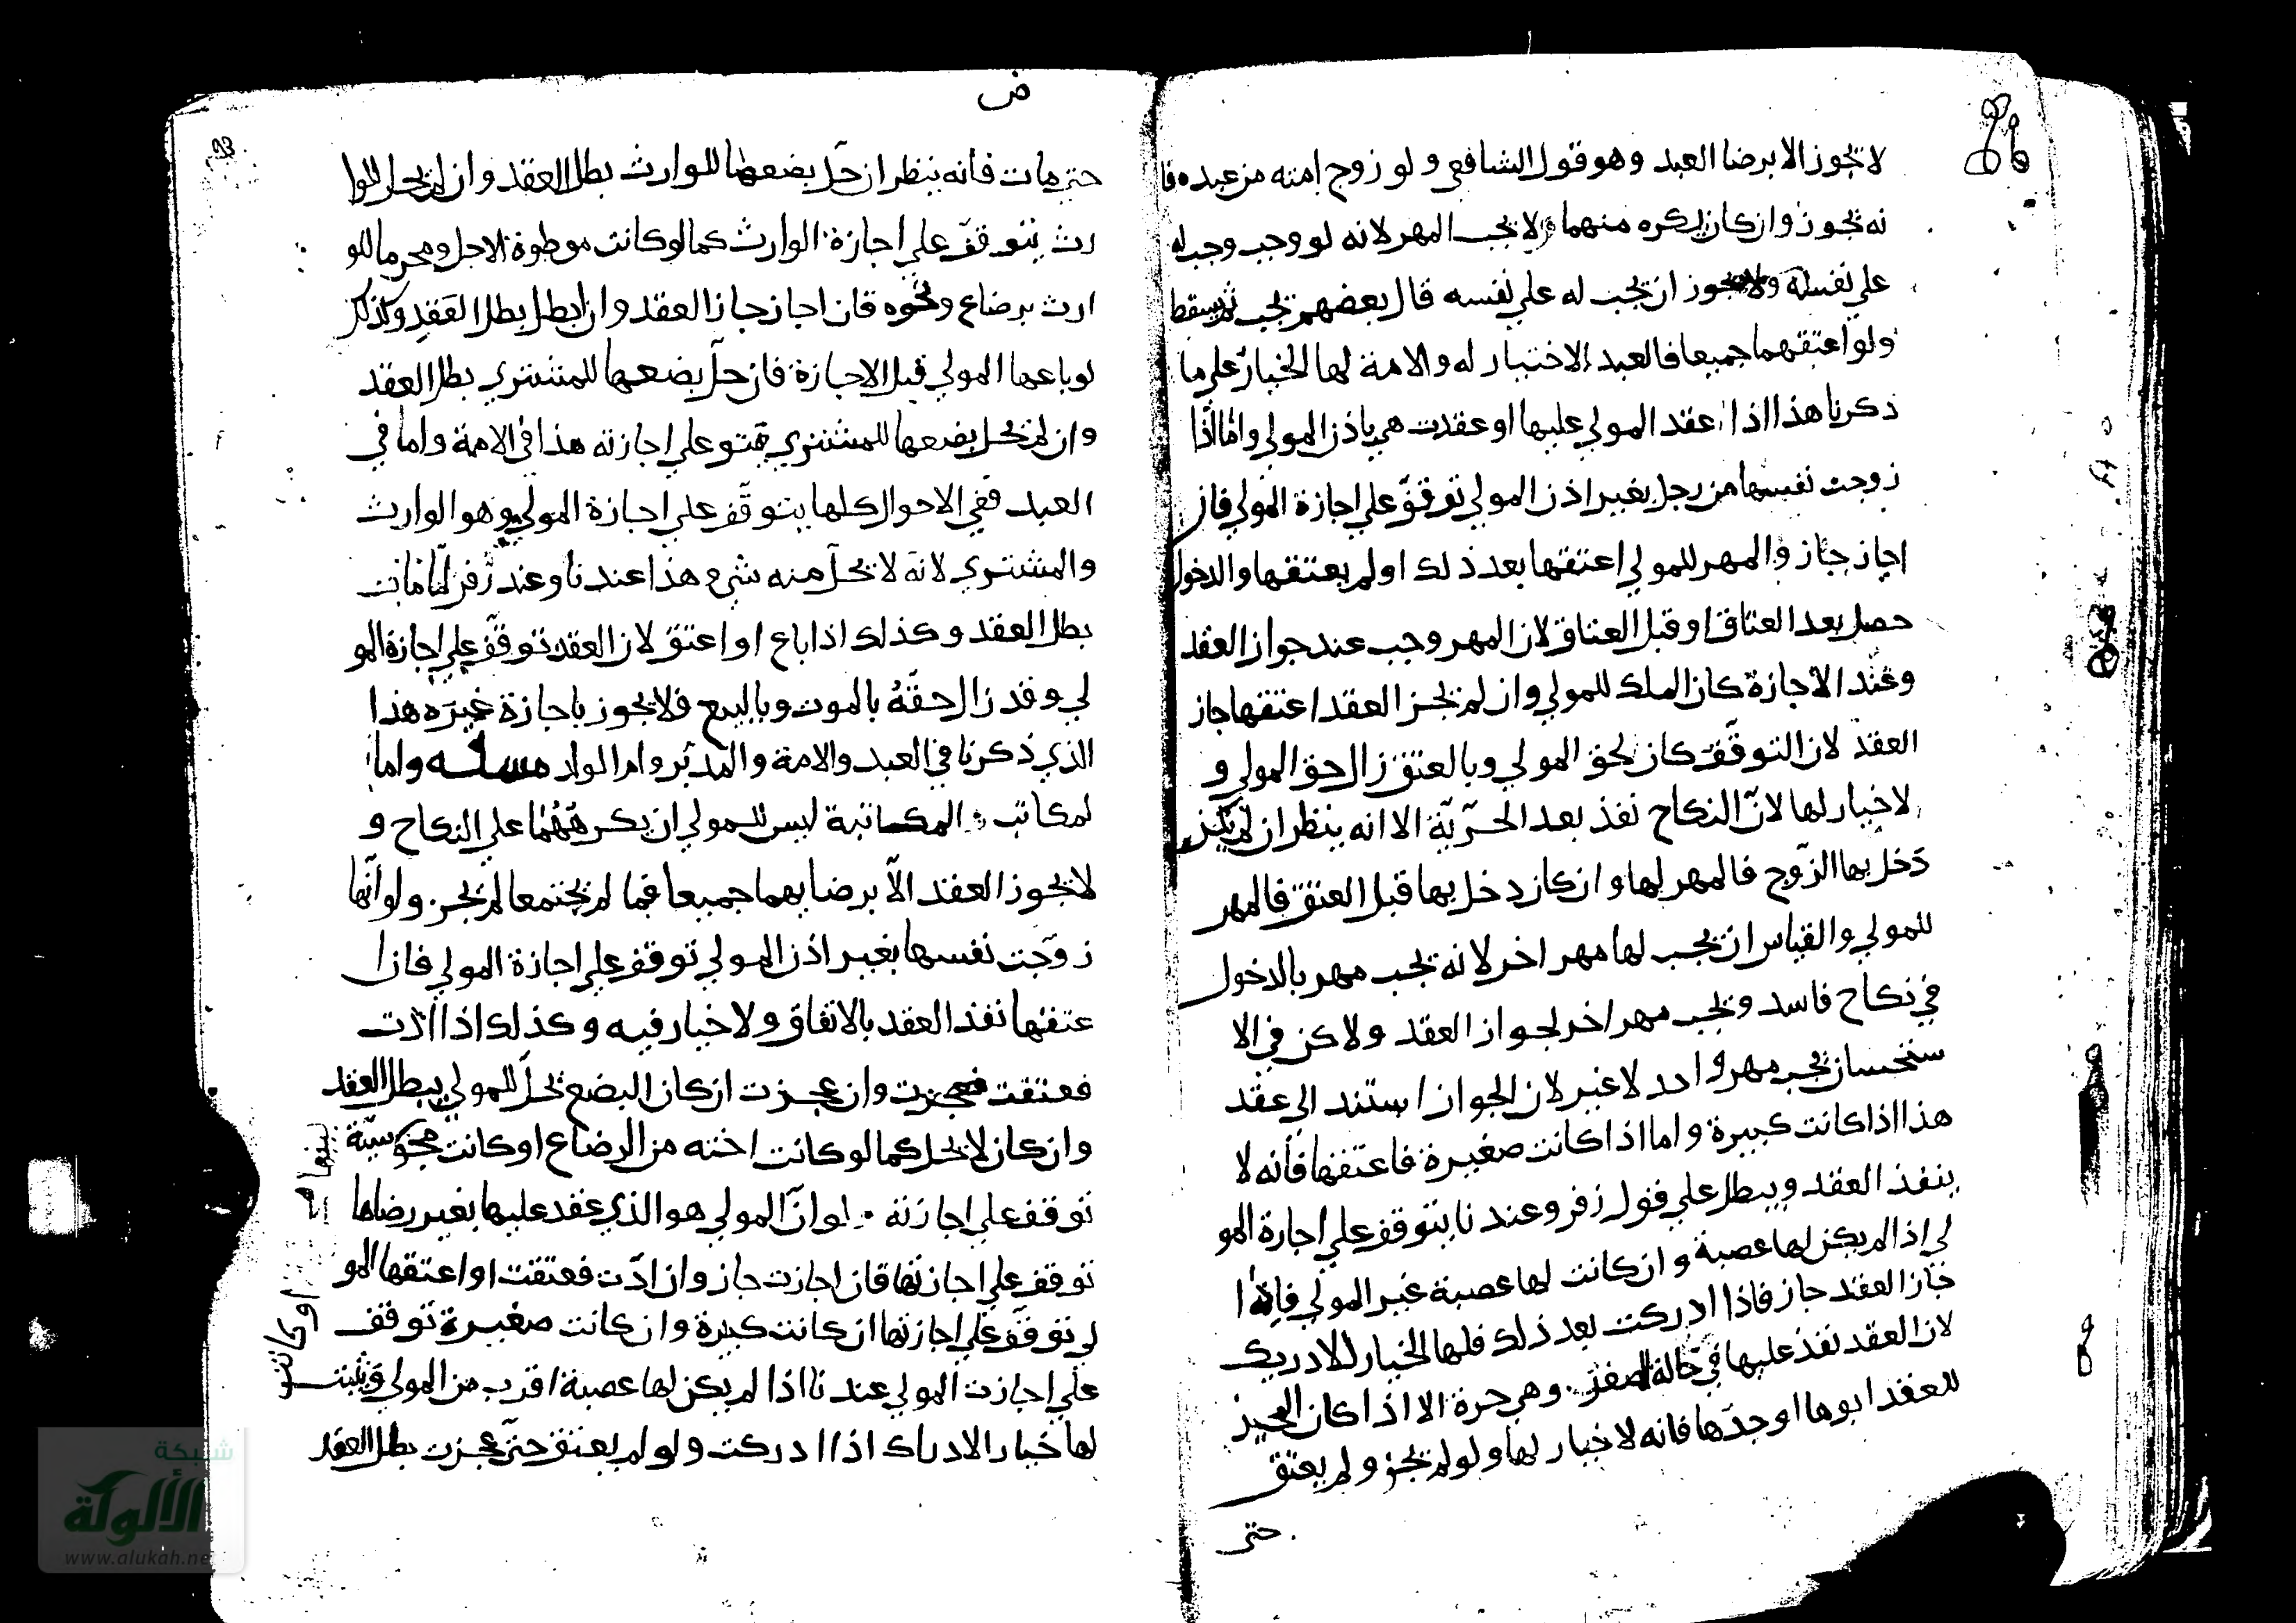 لا يجوز الا برضا العبد وهو قول الشافعي ولو زوج امته من عبده فا
نه يجوز وان كان بكره منهما ولا يجب المهر لانه لو وجب وجب له
علي نفسه ولا يجوز ان يجب له علي نفسه قال بعضهم يجب ثم يسقط
ولو اعتقهما جميعا فالعبد لاختيار له والامة لها الخيار علي ما
ذكرنا هذا اذا عقد المولي عليها او عقدت هي باذن المولي واما اذا
زوجت نفسها من رجل بغير اذن المولي توقف علي اجازة المولي فان
اجاز جاز والمهر للمولي اعتقها بعد ذلك او لم يعتقها والدخول
حصل بعد العتاق او قبل العتاق لان المهر وجب عند جواز العقد
وعند الاجازة كان الملك للمولي وان لم يجز العقد اعتقها جاز
العقد لان التوقف كان لحق المولي وبالعتق زال حق المولي و
لا خيار لها لان النكاح نفذ بعد الحرية الا انه ينظر ان لم يكن
دخل بها الزوج فالمهر لها وان كان دخل بها قبل العتق فالمهر
للمولي والقياس ان يجب لها مهر اخر لانه يجب مهر بالدخول
في نكاح فاسد ويجب مهر اخر لجواز العقد ولاكن في الا
ستحسان يجب مهر واحد لا غير لان الجواز استند الي عقد
هذا اذا كانت كبيرة واما اذا كانت صغيرة فاعتقها فانه لا
ينفذ العقد ويبطل علي قول زفر وعندنا يتوقف علي اجازة المو
لي اذا لم يكن لها عصبة وان كانت لها عصبة غير المولي فاذا ا
جاز العقد جاز فاذا ادركت بعد ذلك فلها الخيار للادريك
لان العقد نفذ عليها في حالة الصغر وهي حرة الا اذا كان المجيز
للعقد ابوها او جدها فانه لا خيار لها ولو لم يجز ولم يعتق
حتي
ض
حتي مات فانه ينظر ان حل بضعها للوارث بطل العقد وان لم يحل للوا
رث يتوقف علي اجازة الوارث كما لو كانت موطوة لاجل ومحرما للو
ارث برضاع ونحوه فان اجاز جاز العقد وان ابطل بطل العقد وكذلك
لو باعها المولي قبل الاجازة فان حل بضعها للمشتري بطل العقد
وان لم يحل بضعها للمشتري علي اجازته هذا في الامة واما في
العبد ففي الاحوال كلها يتوقف علي اجازة المولي وهو الوارث
والمشتري لانه لا يحل منه شيء هذا عندنا وعند زفر لما مات
بطل العقد وكذلك اذا باع او اعتق لان العقد توقف علي اجازة المو
لي وقد زال حقه بالموت وبالبيع فلا يجوز باجازة غيره هذا
الذي ذكرنا في العبد والامة والمدبر وام الولد مسئلة واما
لمكاتب المكاتبة ليس للمولي ان يكرههما علي النكاح و
لا يجوز العقد الا برضايهما جميعا فما لم يجتمعا لم يجز ولو انها
زوجت نفسها بغير اذن المولي توقف علي اجازة المولي فان ا
عتقها نفذ العقد بالاتفاق ولا خيار فيه وكذلك اذا ادت
فعتقت وان عجزت ان كان البضع يحل للمولي يبطل العقد
وان كان لا يحل كما لو كانت اخته من الرضاع او كانت مجوسية
توقف علي اجازته لو ان المولي هو الذي عقد عليها بغير رضاها
توقف علي اجازتها فان اجازت جاز وان ادت فعتقت او اعتقها المو
لي توقف علي اجازتها ان كانت كبيرة وان كانت صغيرة توقف
علي اجازت المولي عندنا اذا لم يكن لها عصبة اقرب من المولي ويثبت
لها خيار الادراك اذا ادركت ولو لم يعتق حتي عجزت بطل العقد
او كانت
شبكة
الألوكة
www.alukah.ne